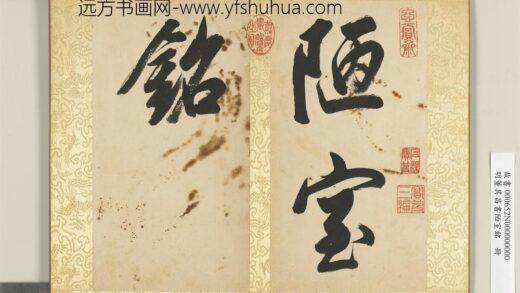 远方书画网-www.yfshuhua.com
陋室
銘
故書000652N000000000
明董其昌書陋室銘 冊